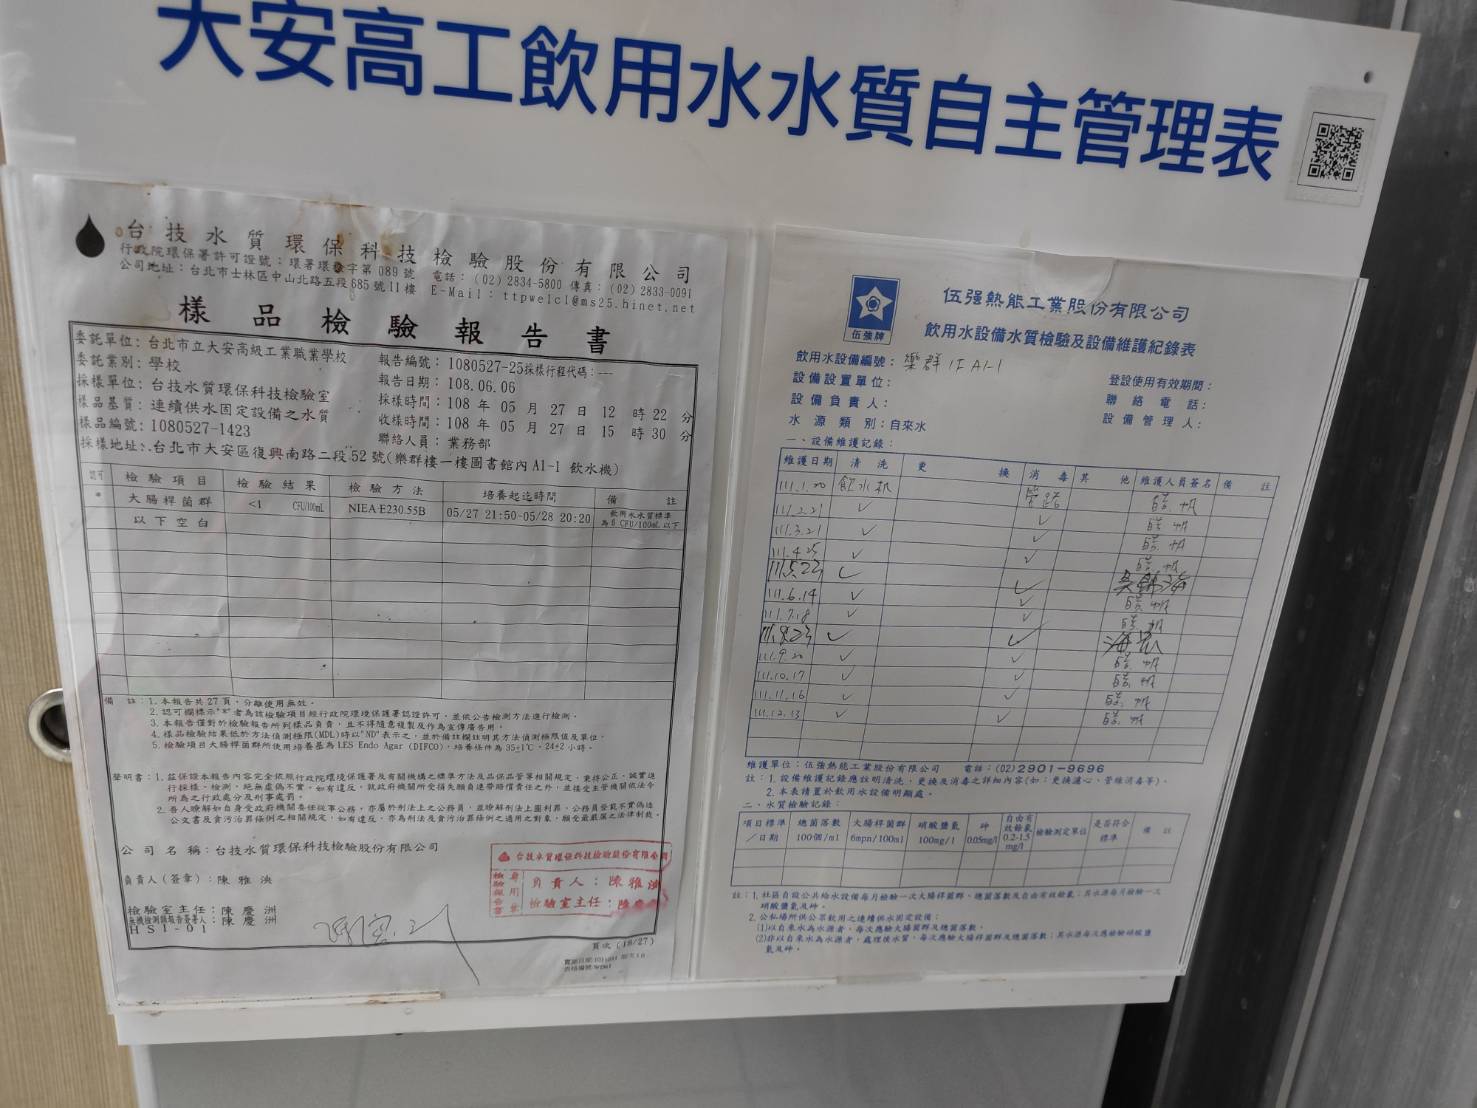 大安高工飲用水水質自主管理表
台技水質環保科技檢驗股份有限公司
行政院環保署許可證號：環署環檢字第089號 電話：(02)2834-5800 傳真：(02)2833-0091
公司地址：台北市士林區中山北路五段685號11樓 E-Mail：ttpwelcl@ms25.hinet.net
樣品檢驗報告書
委託單位：台北市立大安高級工業職業學校 報告編號：1080527-25採樣行程代碼：---
委託業別：學校 報告日期：108.06.06
採樣單位：台技水質環保科技檢驗室 採樣時間：108 年 05 月 27 日 12 時 22 分
樣品基質：連續供水固定設備之水質 收樣時間：108 年 05 月 27 日 15 時 30 分
樣品編號：1080527-1423 聯絡人員：業務部
採樣地址：台北市大安區復興南路二段52號(樂群樓一樓圖書館內A1-1 飲水機)
認可 檢驗項目 檢驗結果 檢驗方法 培養起迄時間 備註
* 大腸桿菌群 <1 CFU/100mL NIEA E230.55B 05/27 21:50~05/28 20:20 飲用水水質標準為6 CFU/100mL以下
以下空白
備 註：1.本報告共27頁，分離使用無效。
2.認可欄標示"*"者為該檢驗項目經行政院環境保護署認證許可，並依公告檢測方法進行檢測。
3.本報告僅對於檢驗報告所列樣品負責，且不得隨意複製及作為宣傳廣告用。
4.樣品檢驗結果低於方法偵測極限(MDL)時以"ND"表示之，並於備註欄註明其方法偵測極限值及單位。
5.檢驗項目大腸桿菌群所使用培養基為LES Endo Agar (DIFCO)，培養條件為35±1℃，24±2小時。
聲明書：1.茲保證本報告內容完全依照行政院環境保護署及有關機構之標準方法及品保品管等相關規定，秉持公正、誠實進
行採樣、檢測。絕無虛偽不實，如有違反，就政府機關所受損失願負連帶賠償責任之外，並接受主管機關依法令
所為之行政處分及刑事處罰。
2.吾人瞭解如自身受政府機關委任從事公務，亦屬於刑法上之公務員，並瞭解刑法上圖利罪、公務員登載不實偽造
公文書及貪污治罪條例之相關規定，如有違反，亦為刑法及貪污治罪條例之適用之對象，願受最嚴厲之法律制裁。
公司名稱：台技水質環保科技檢驗股份有限公司
負責人(簽章)：陳雅泱
檢驗室主任：陳慶洲
無機檢測類報告簽署人：陳慶洲
HSI-01
台技水質環保科技檢驗股份有限公司
檢驗報告書專用章
負責人：陳雅泱
檢驗室主任：陳慶
頁次 (18/27)
伍強牌
伍强熱能工業股份有限公司
飲用水設備水質檢驗及設備維護紀錄表
飲用水設備編號：樂群1F A1-1 登設使用有效期間：
設備設置單位： 聯絡電話：
設備負責人： 設備管理人：
水源類別：自來水
一、設備維護記錄：
維護日期 清洗 更換 消毒 其他 維護人員簽名 備註
111.1.20 飲水机 管路
111.2.21 ✓ ✓
111.3.21 ✓ ✓
111.4.25 ✓ ✓
111.5.23 ✓ ✓
111.6.14 ✓ ✓
111.7.18 ✓ ✓
111.8.23 ✓ ✓
111.9.20 ✓ ✓
111.10.17 ✓ ✓
111.11.16 ✓ ✓
111.12.13 ✓ ✓
維護單位：伍強熱能工業股份有限公司 電話：(02)2901-9696
註：1.設備維護記錄應註明清洗、更換及消毒之詳細內容(如：更換濾心、管線消毒等)。
2.本表請置於飲用水設備明顯處。
二、水質檢驗記錄：
項目標準／日期 總菌落數 100個/ml 大腸桿菌群 6mpn/100ml 硝酸鹽氮 100mg/l 砷 0.05mg/l 自由有效餘氯 0.2-1.5 mg/l 檢驗測定單位 是否符合標準 備註
註：1.社區自設公共給水設備每月檢驗一次大腸桿菌群、總菌落數及自由有效餘氯；其水源每月檢驗一次
硝酸鹽氮及砷。
2.公私場所供公眾飲用之連續供水固定設備：
(1)以自來水為水源者，每次應驗大腸菌群及總菌落數。
(2)非以自來水為水源者，處理後水質，每次應驗大腸桿菌群及總菌落數；其水源每次應檢驗硝酸鹽
氮及砷。